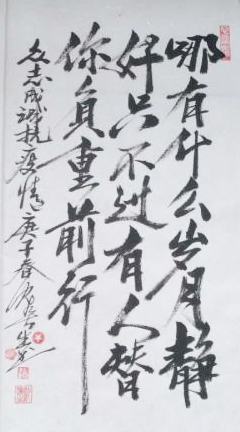 哪有什么岁月静
好只不过有人替
你负重前行
众志成诚抗疫情庚子春